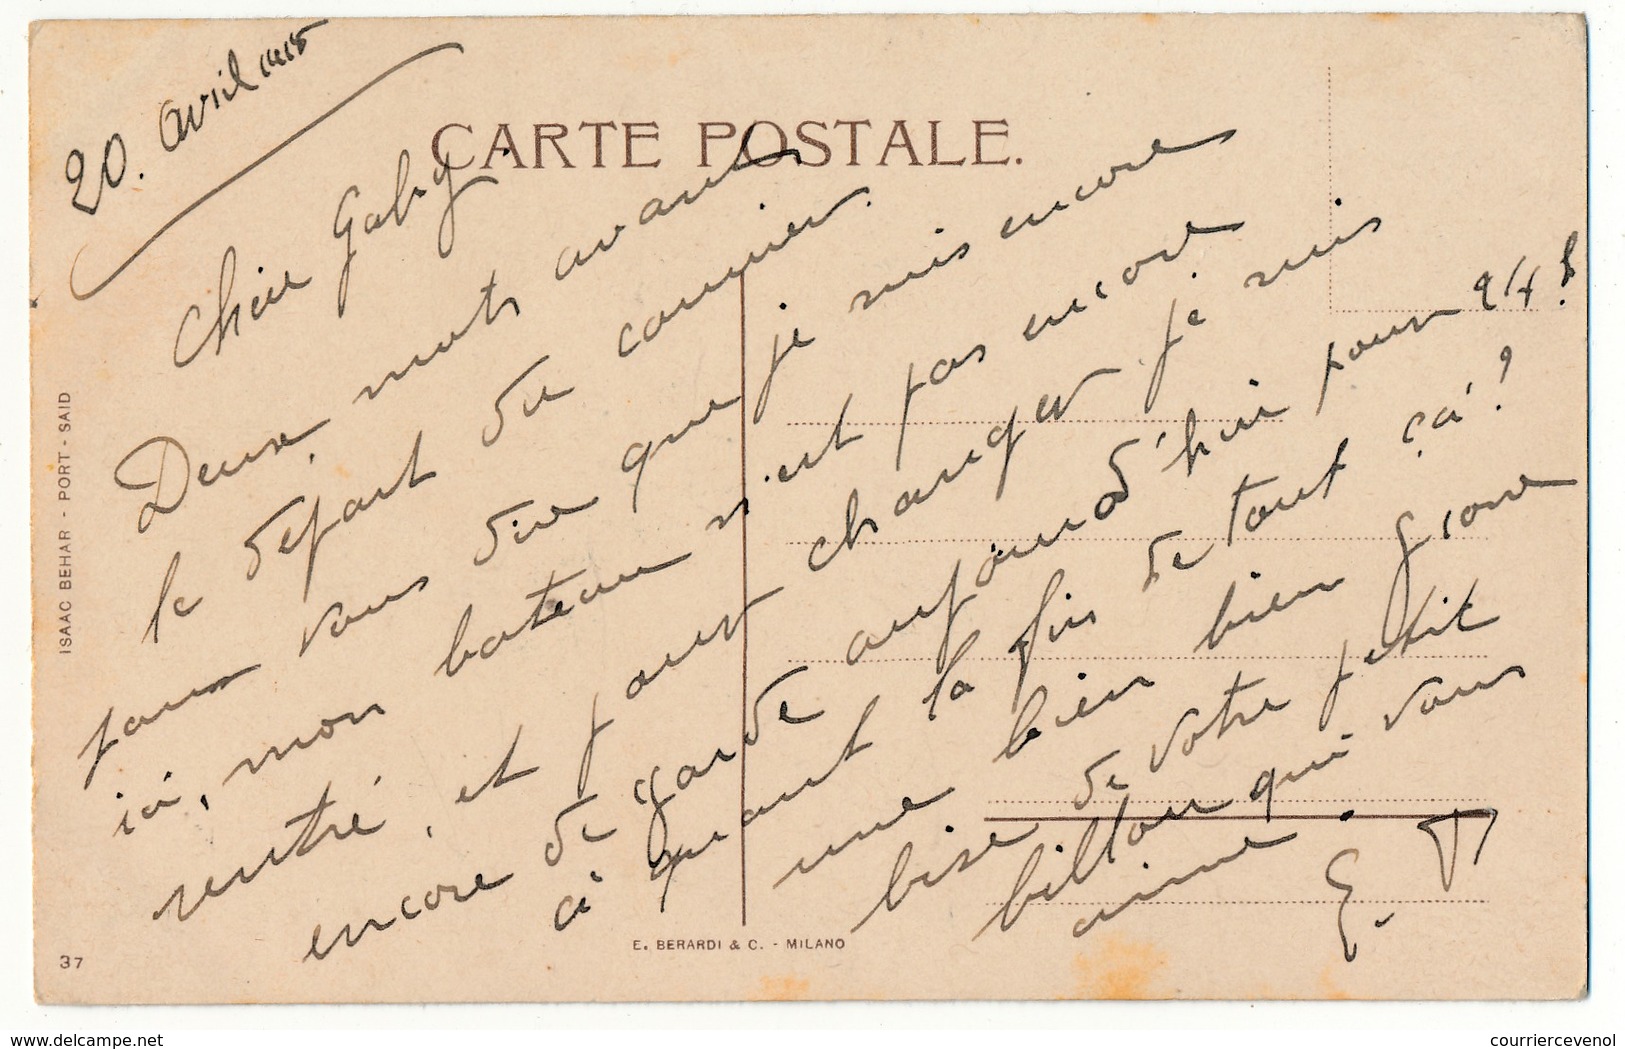 20. avril 1915
CARTE POSTALE.
Chère Gaby
Deux mots avant
le départ du courrier.
pour vous dire que je suis encore
ici, mon bateau n'est pas encore
rentré, et pour changer je suis
encore de garde aujourd'hui pour 24 h.
à quant la fin de tout ça ?
une bien bien bien grosse
bise de votre petit
qui vous
aime.
ISAAC BEHAR - PORT-SAID
37
E. BERARDI & C. - MILANO
www.delcampe.net
courriercevenol